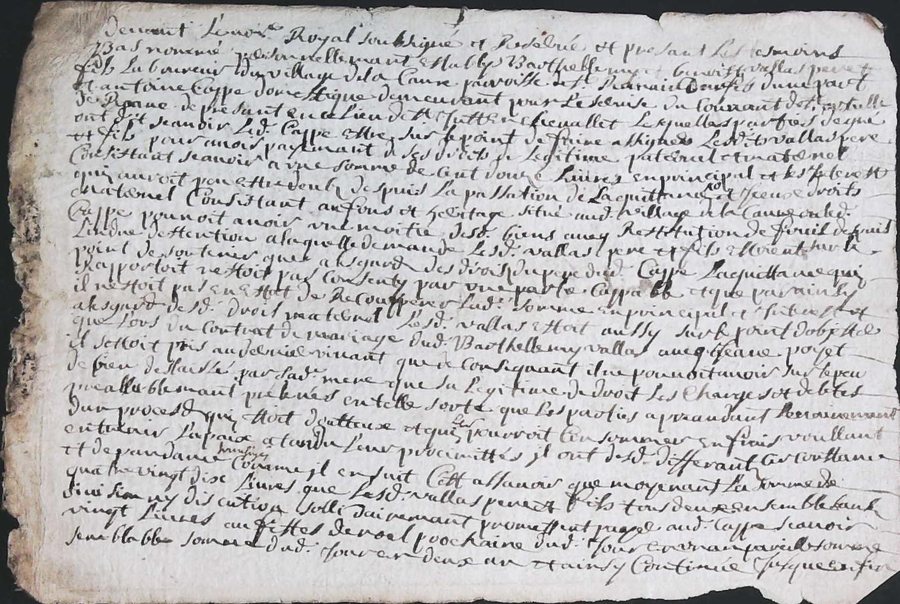 Devant Le no.re Royal soubsigné et Reservé et presant Les tesmoins
Bas nommé personnellemant Estably Barthellemy et benoist vallas pere et
fils Laboureur du village de la Caure parroisse de St d'une part
Et antoine Cappe domestique demeurant pour Le service du Couvant des
de Roane de presant en ce lieu de Lesquelles parties de gré
ont dit scavoir Led. Cappe Estre sur le point de faire assigner Lesdits vallas pere
et fils pour avoir payemant de ses droits de Legitime paternel et maternel
Consistant scavoir a une somme de Cent douze Livres en principal et
qui auroit peu estre deub despuis La passation de La quittance et ses droits
maternel Consistant en fons et heritage situé aud. village de la Caure ou led.
Cappe pouvoit avoir une moitié desd. biens avec Restitution de fruit despuis
L'indue detention a laquelle demande Lesd. vallas pere et fils Estoient sur le
point de soutenir que a l'esgard des droits du pere dud. Cappe La quittance qu'il
Rapportoit n'estoit pas Consenty par une partie Cappable et que par ainsy
il n'estoit pas en Estat de Recoupperer Lad. somme en principal et
a l'esgard desd. droit maternel Lesd. vallas Estoit aussy sur le point d'objecter
que Lors du Contrat de mariage dud. Barthellemy vallas avec Jeane poyet
il s'estoit pris au dernier vivant que de Consequant il ne pouvoit avoir sur le peu
de bien delaissé par lad. mere que sa Legitime de droit Les Charges et debtes
preallablemant prelevés en telle sorte que Les parties apreandant L'evenement
d'un proces qui Estoit doutteux et qui pourroit Consommer en frais voullant
entretenir La paix attandu Leurs proximittés jl ont desd. differant Circonstance
et despandance transigé Comme jl en suit C'est assavoir que moyenant La somme de
quatre vingt dix Livres que Lesd. vallas pere et fils tous deux ensemble sans
division ny discution sollidairemant promettent payer aud. Cappe scavoir
vingt Livres au festes de noel prochaine dud. Jour en un an pareille somme
semblable somme dud. Jour en deux an et ainsy Continué Jusques en fin